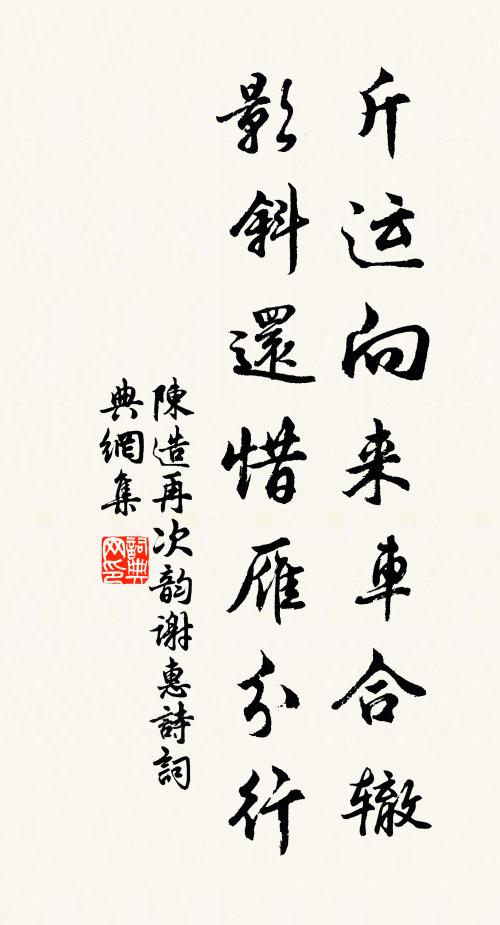 斤运向来车合辙
影斜還惜雁分行
陳造再次韵谢惠詩詞
典網集
詞典网印